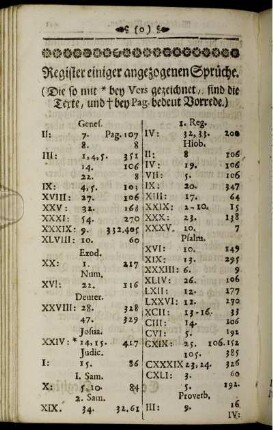 (o)
Register einiger angezogenen Sprüche.
(Die so mit * bey Vers gezeichnet, sind die
Texte, und † bey Pag. bedeut Vorrede.)
Genes.
II: 7. Pag. 107
8. 8
III: 1, 4, 5. 351
14. 106
22. 8
IX: 4, 5. 103
XVIII: 27. 106
XXV: 32. 163
XXXI: 54. 270
XXXIX: 9. 332.405
XLVIII: 10. 60
Exod.
XX: 1. 217
Num,
XVI: 22. 116
Deuter.
XXVIII: 28. 328
47. 329
Josua.
XXIV: * 14, 15. 417
Judic.
I: 15. 86
1. Sam.
X: 5. 10. 84
2. Sam.
XIX. 34. 32, 61
1. Reg.
IV: 32, 33. 200
Hiob.
II: 8 106
IV: 19. 106
VII: 5. 106
IX: 20. 347
XIII: 17. 64
XXIX: 2-10. 15
XXX: 23. 138
XXXV. 10. 7
Psalm.
XVI: 10. 149
XIX: 13. 295
XXXIII: 6. 9
XLIV: 26. 106
LXII: 12. 177
LXXVII: 12. 270
XCII: 13-16. 33
CIII: 14. 106
CVI: 5. 191
CXIX: 25. 106.152
105. 385
CXXXIX 23, 24. 326
CXLI: 3. 60
5. 192.
Proverb.
III: 9. 16
IV: